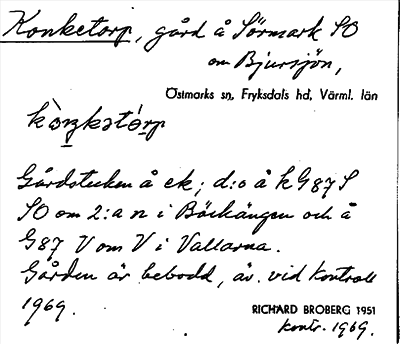 Konketorp, gård å Sörmark SO
om Bjursjön,
Östmarks sn, Fryksdals hd, Värml. län
kò̱ŋkətó̱rp
Gårdstecken å ek; d:o å k G87 S
SO om 2:a n i Bäckängen och å
G87 V om V i Vallarna.
Gården är bebodd, äv. vid kontroll
1969.
RICHARD BROBERG 1951
kontr. 1969.